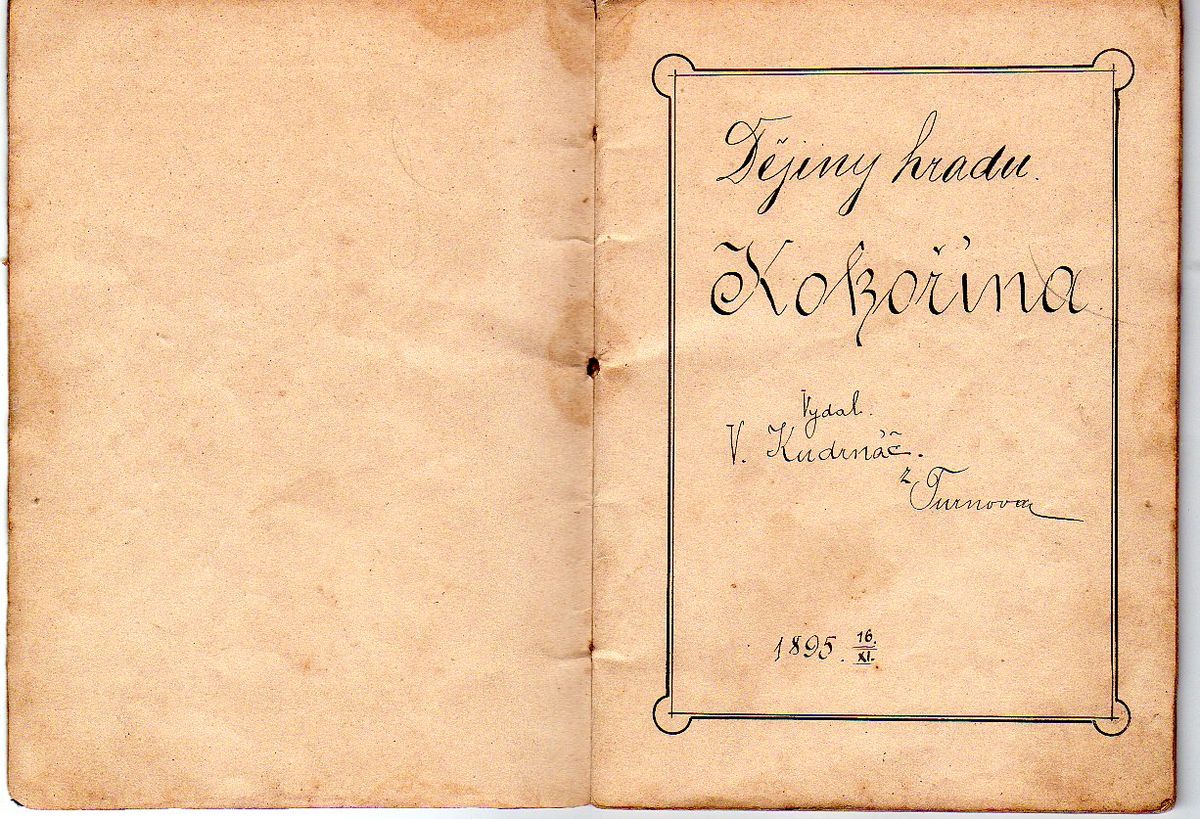 Dějiny hradu.
Kokořína.
Vydal.
V. Kudrnáč.
z
Turnova
1895. 16./XI.